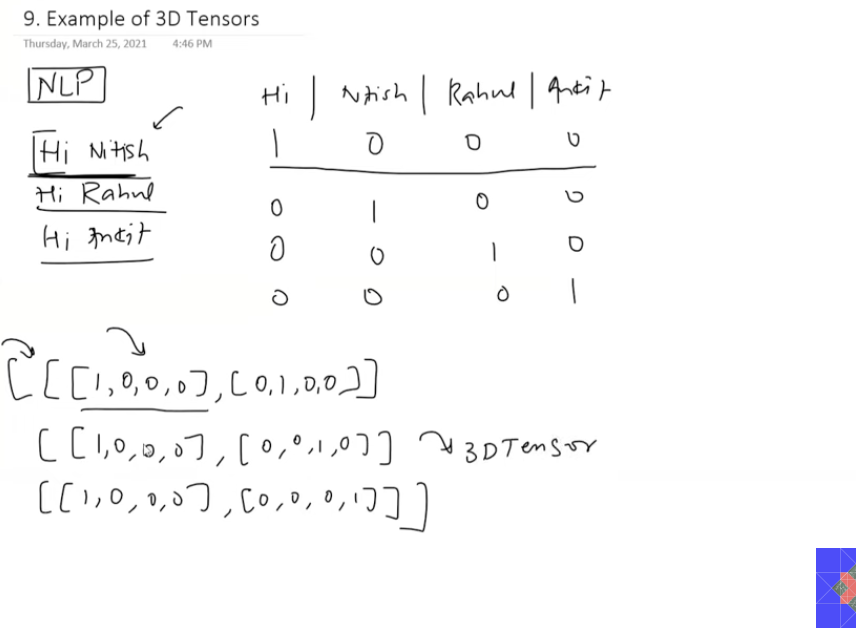 9. Example of 3D Tensors
Thursday, March 25, 2021 4:46 PM
NLP
Hi | Nitish | Rahul | Ankit
1 0 0 0
Hi Nitish
Hi Rahul
0 1 0 0
Hi Ankit
0 0 1 0
0 0 0 1
[[[1,0,0,0],[0,1,0,0]]
[[1,0,0,0],[0,0,1,0]] 3D Tensor
[[1,0,0,0],[0,0,0,1]]]